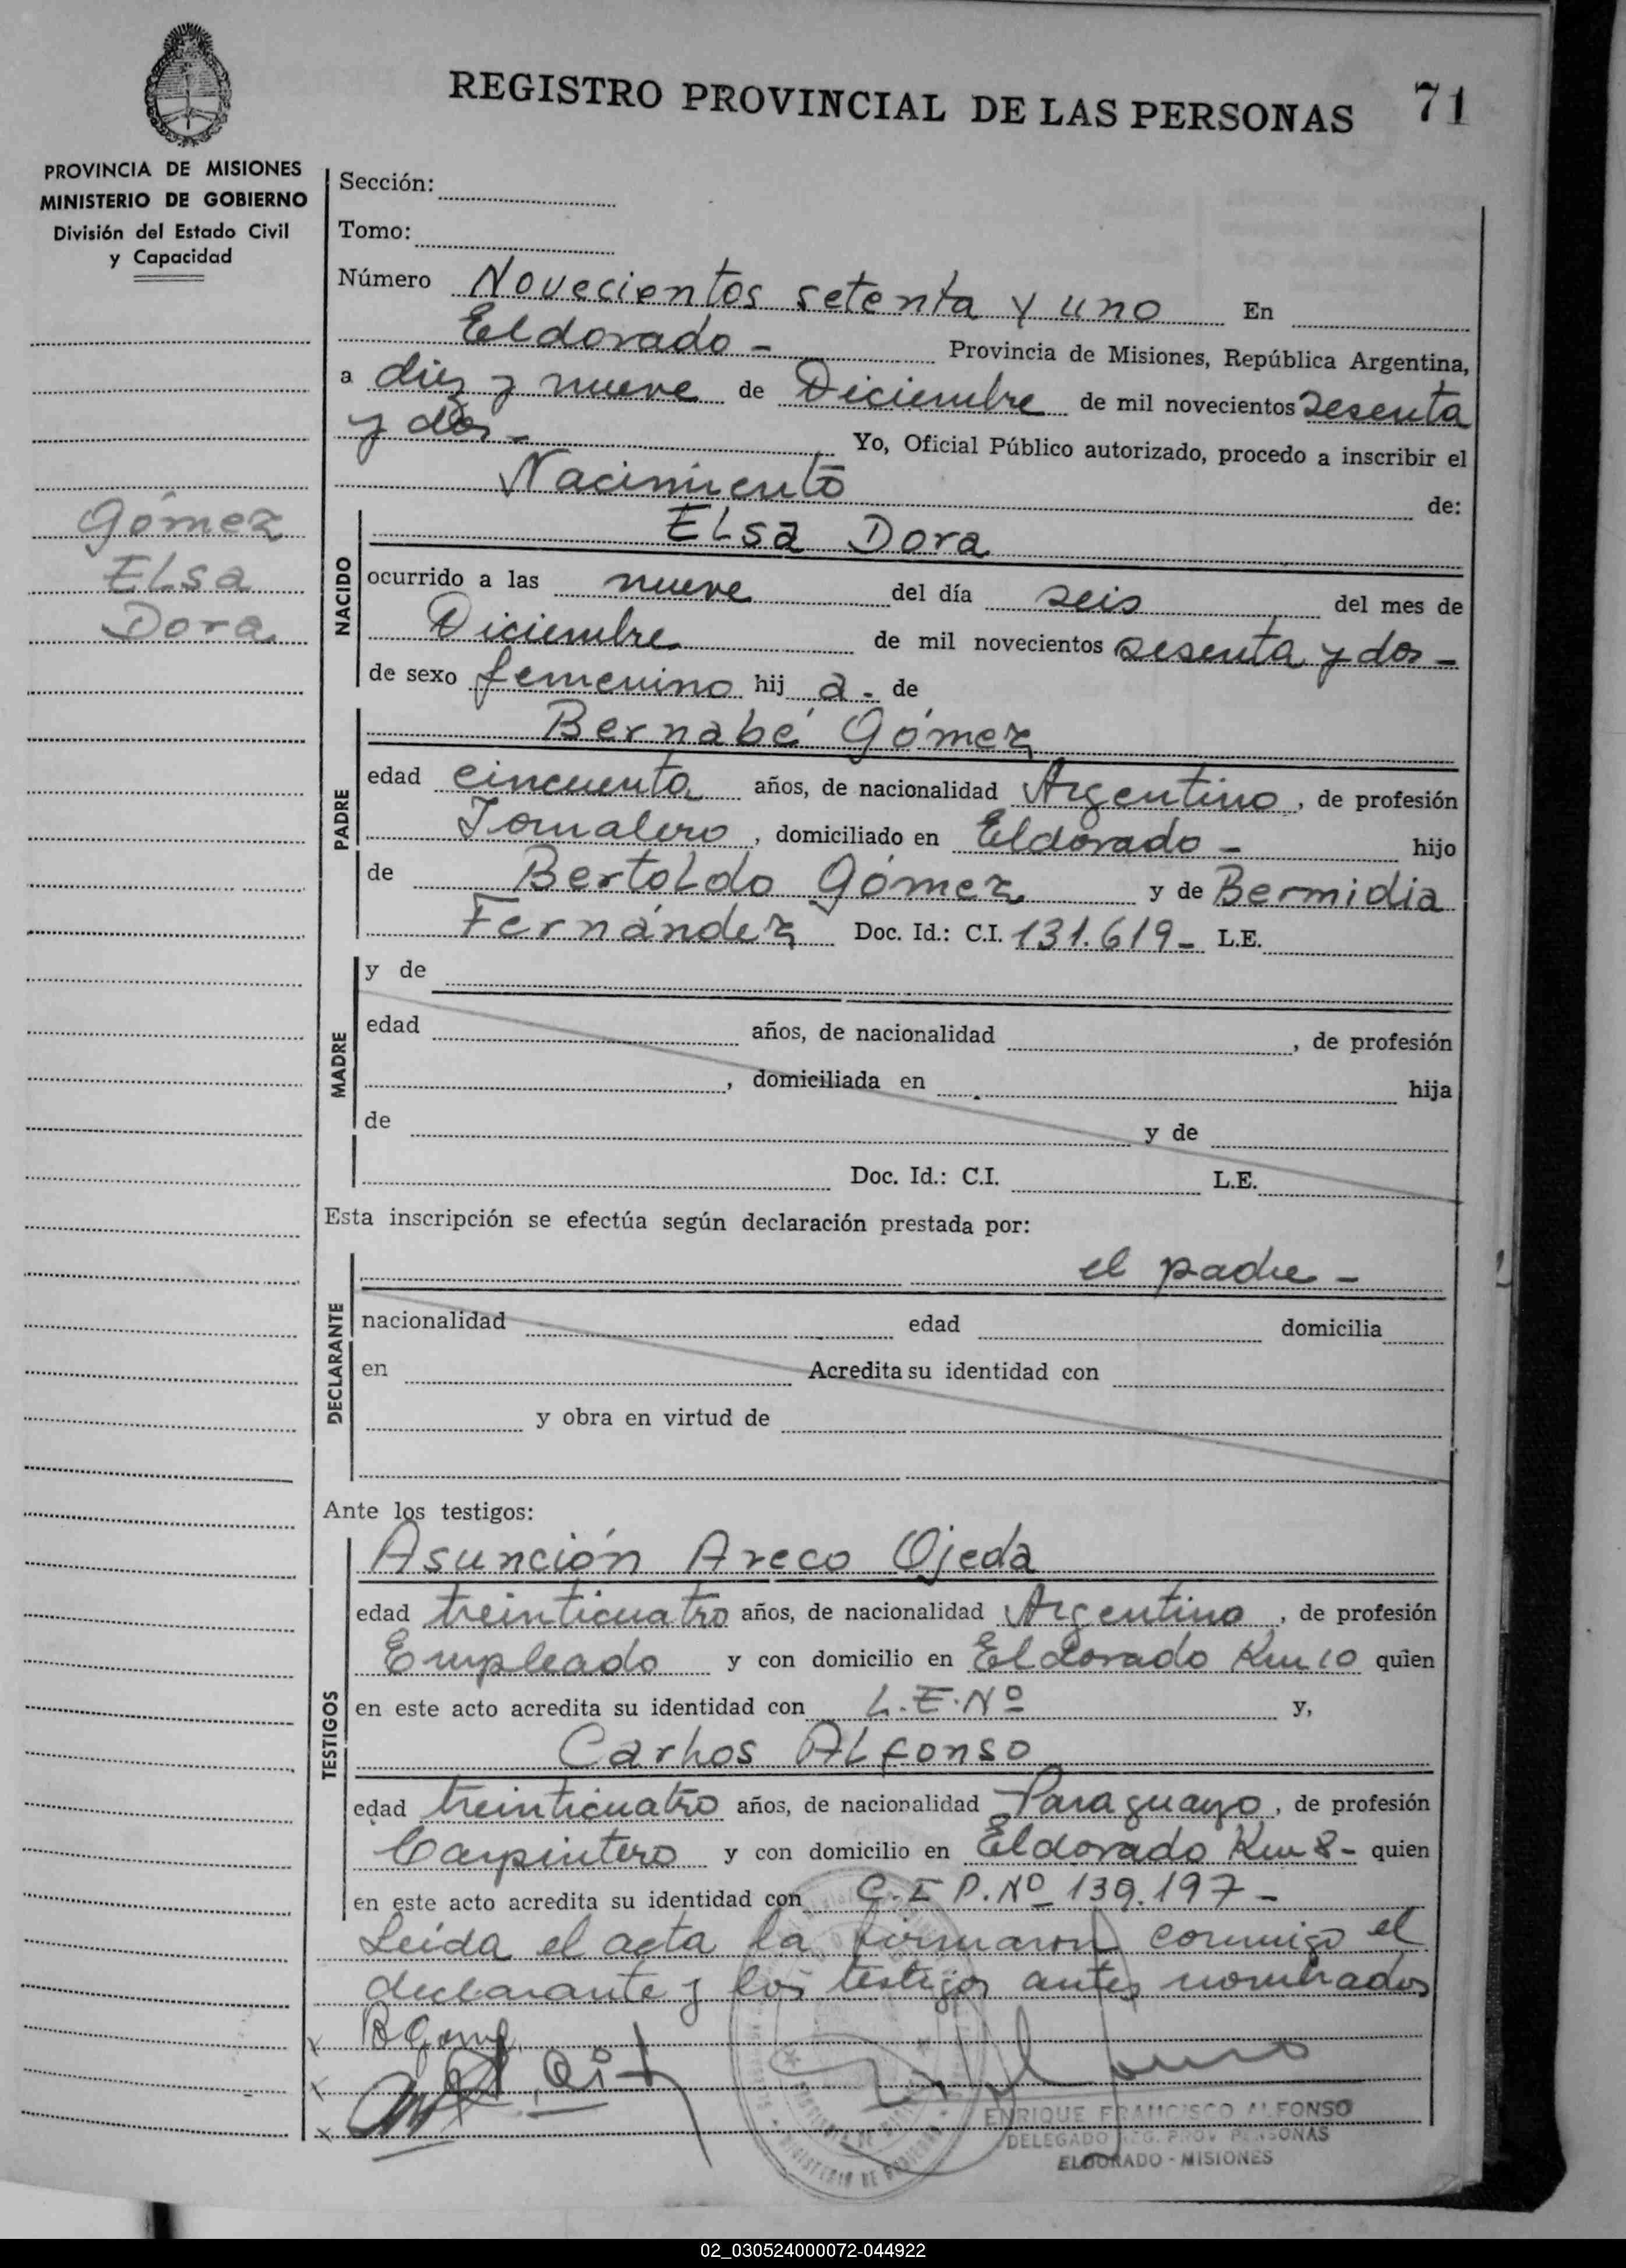 REGISTRO PROVINCIAL DE LAS PERSONAS 71
PROVINCIA DE MISIONES
MINISTERIO DE GOBIERNO
División del Estado Civil
y Capacidad
Gómez
Elsa
Dora
Sección:
Tomo:
Número Novecientos setenta y uno En
Eldorado - Provincia de Misiones, República Argentina,
a diez y nueve de Diciembre de mil novecientos sesenta
y dos - Yo, Oficial Público autorizado, procedo a inscribir el
Nacimiento de:
NACIDO
Elsa Dora
ocurrido a las nueve del día seis del mes de
Diciembre de mil novecientos sesenta y dos -
de sexo femenino hij a - de
PADRE
Bernabé Gómez
edad cincuenta años, de nacionalidad Argentino, de profesión
Jornalero, domiciliado en Eldorado - hijo
de Bertoldo Gómez y de Bermidia
Fernández Doc. Id.: C.I. 131.619 - L.E.
MADRE
y de
edad años, de nacionalidad , de profesión
, domiciliada en hija
de y de
Doc. Id.: C.I. L.E.
Esta inscripción se efectúa según declaración prestada por:
DECLARANTE
el padre -
nacionalidad edad domicilia
en Acredita su identidad con
y obra en virtud de
Ante los testigos:
TESTIGOS
Asunción Areco Ojeda
edad treinticuatro años, de nacionalidad Argentino, de profesión
Empleado y con domicilio en Eldorado Km 10 quien
en este acto acredita su identidad con L.E.Nº y,
Carlos Alfonso
edad treinticuatro años, de nacionalidad Paraguayo, de profesión
Carpintero y con domicilio en Eldorado Km 8 - quien
en este acto acredita su identidad con C.I P.Nº 139.197 -
Leída el acta la firmaron conmigo el
declarante y los testigos antes nombrados
ENRIQUE FRANCISCO ALFONSO
DELEGADO REG. PROV. PERSONAS
ELDORADO - MISIONES
02_030524000072-044922